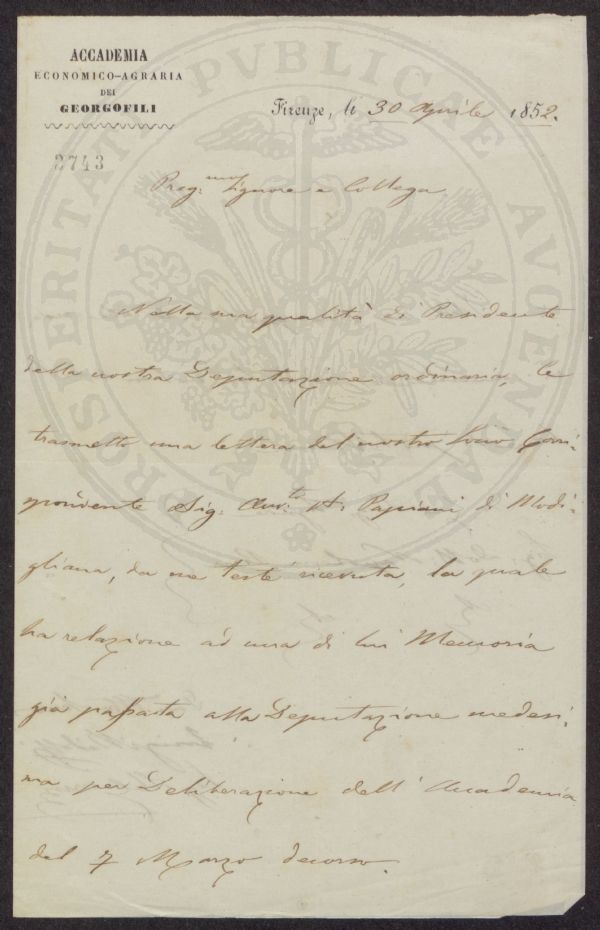 ACCADEMIA
ECONOMICO-AGRARIA
DEI
GEORGOFILI
Firenze, li 30 Aprile 1852.
2743
PROSPERITATI PVBLICAE AVGENDAE
Preg.mo Signore e Collega
Nella sua qualità di Presidente
della nostra Deputazione ordinaria, le
trasmetto una lettera del nostro Socio Corri-
spondente Sig. Avv.to Papiani di Modi-
gliana, da me testè ricevuta, la quale
ha relazione ad una di lui Memoria
già passata alla Deputazione medesi-
ma per Deliberazione dell'Accademia
del 7 Marzo decorso.